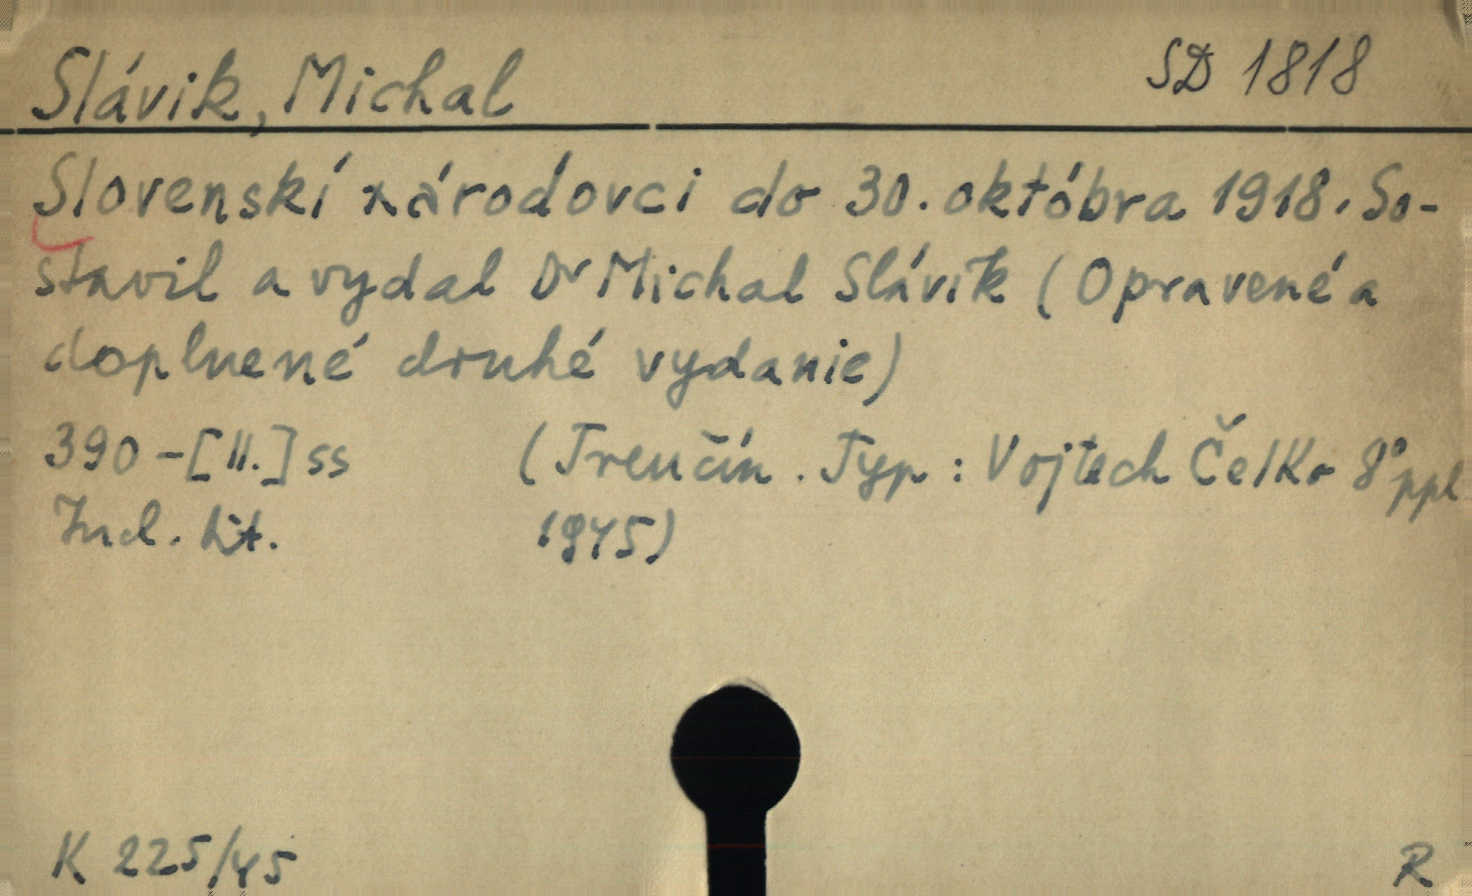 Slávik, Michal
SD 1818
Slovenskí národovci do 30. októbra 1918. So-
stavil a vydal Dr Michal Slávik (Opravené a
doplnené druhé vydanie)
390-[II.] ss (Trenčín. Typ: Vojtech Čelko 8° ppl
Ind. Lit. 1945)
K 225/45
R